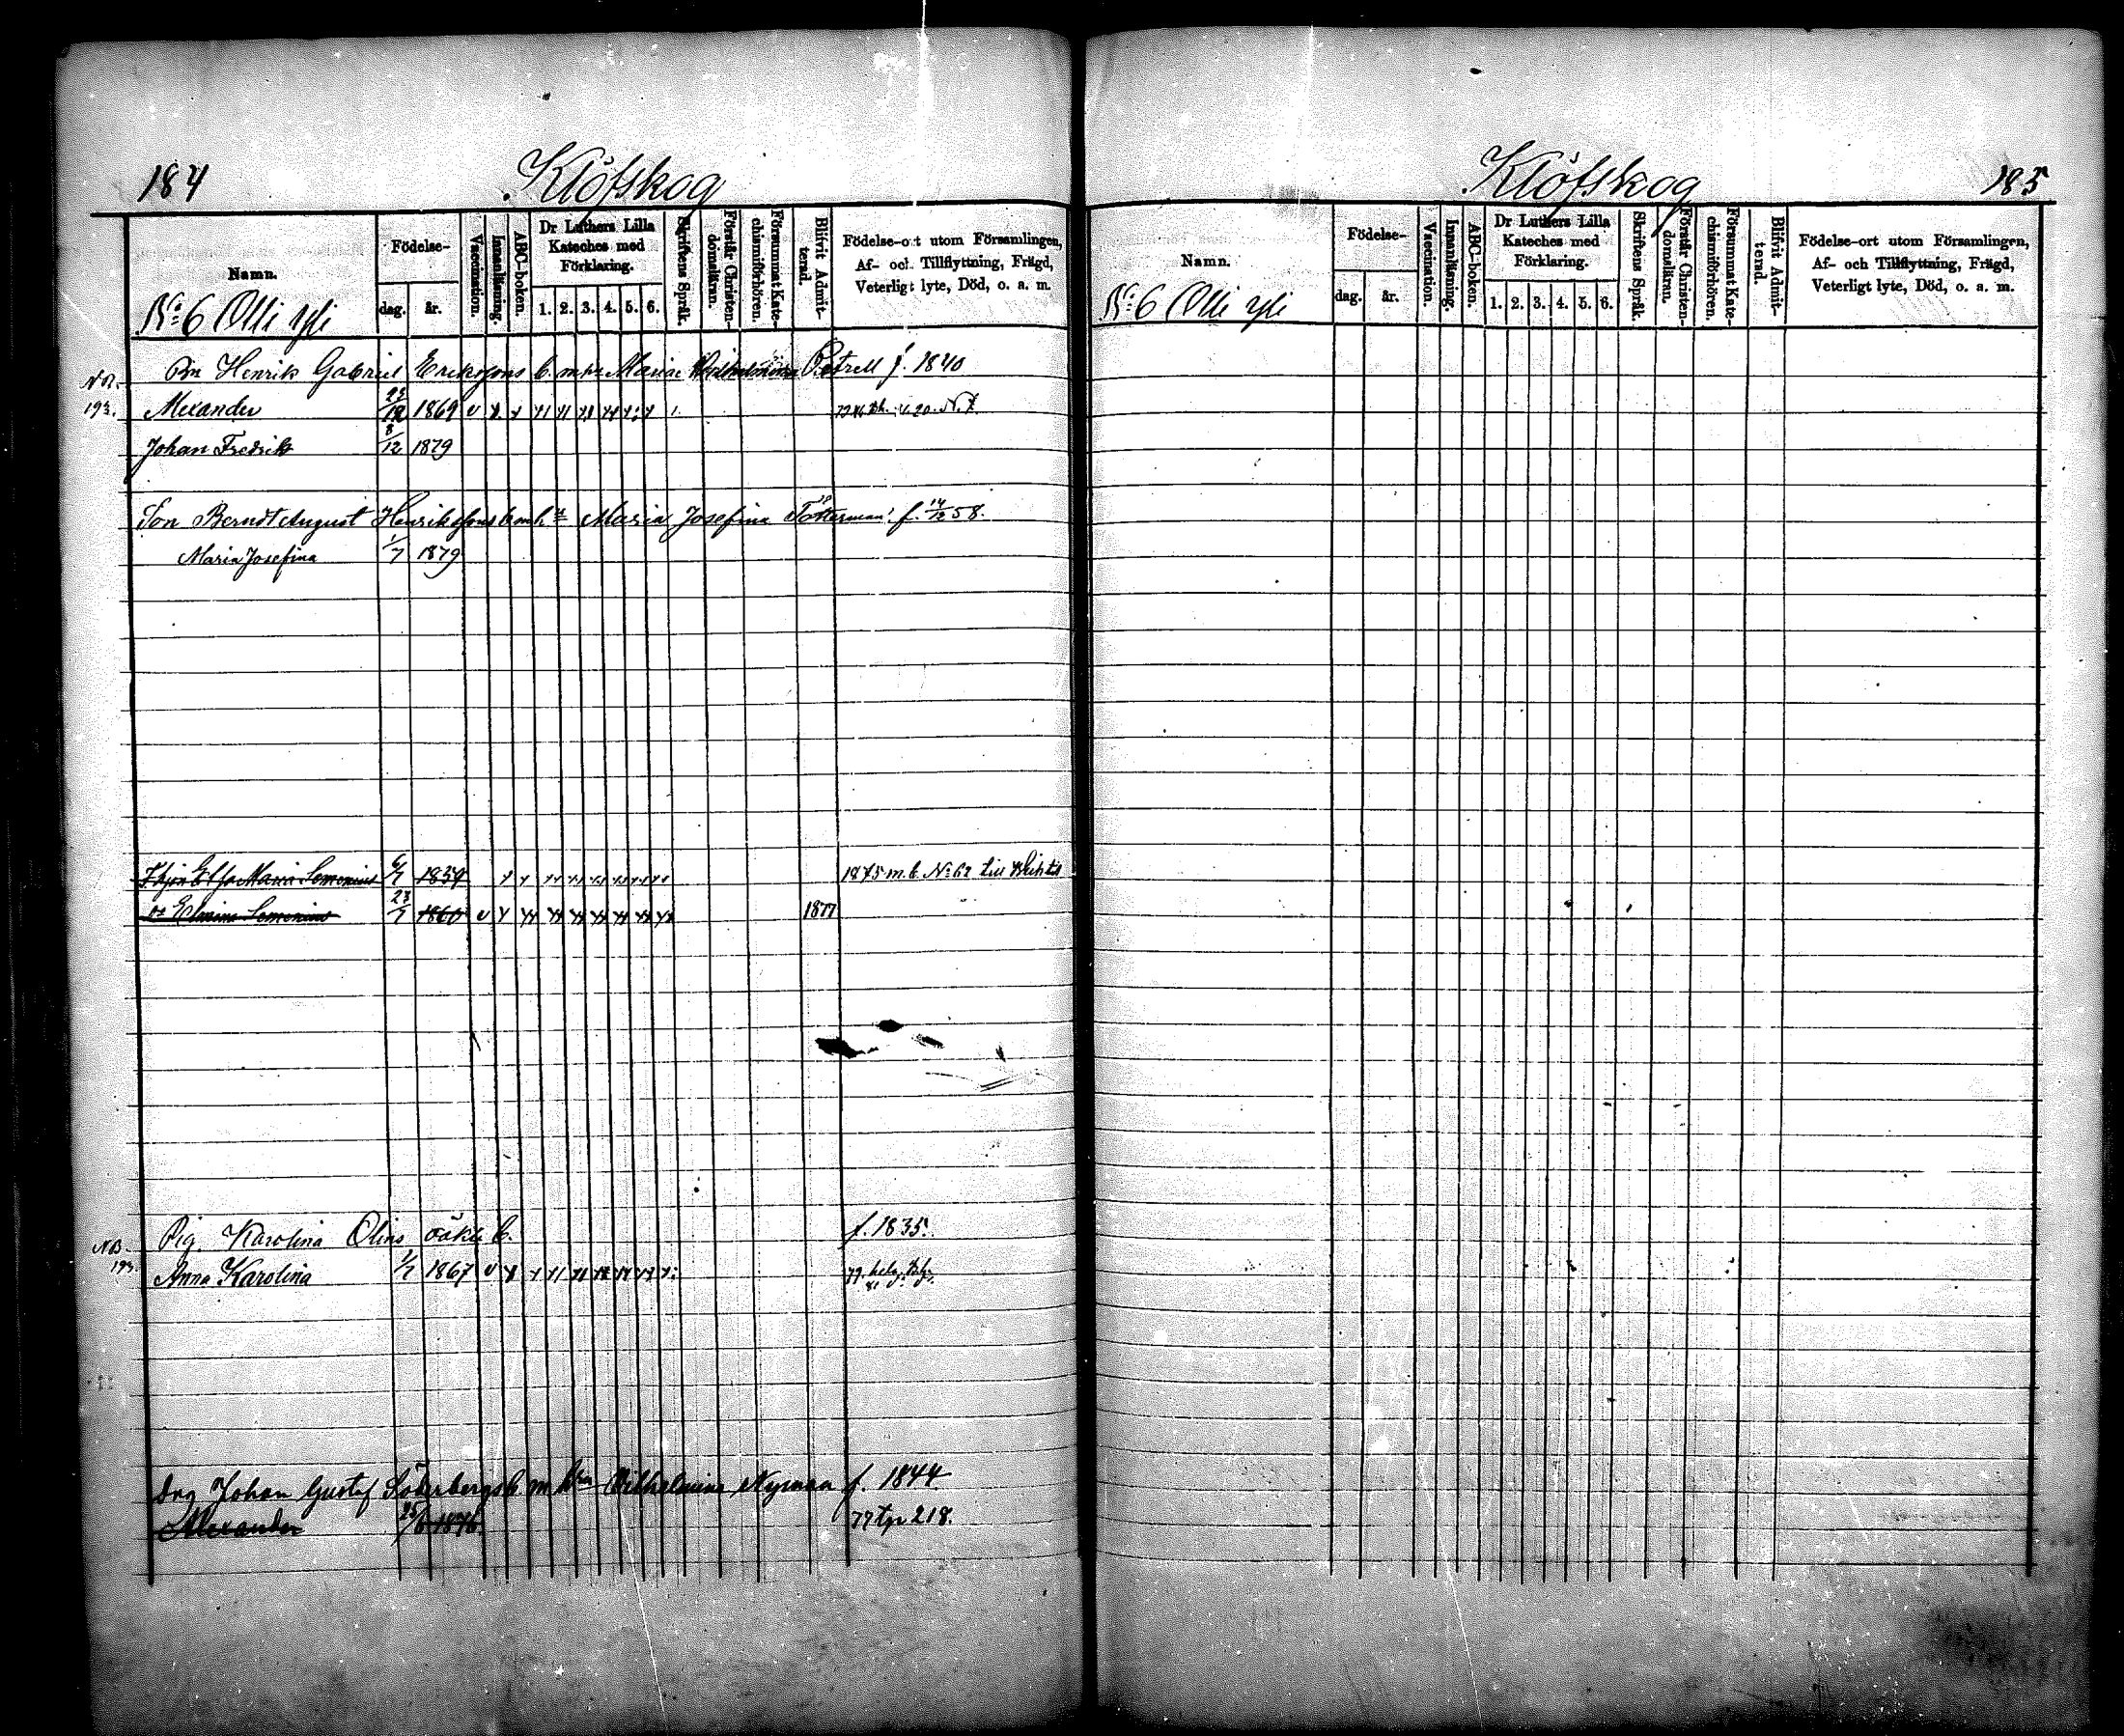 184
Klöfskog
Namn.
Födelse-
dag.
år.
Vaccination.
Innanläsning.
ABC-boken.
Dr Luthers Lilla
Kateches med
Förklaring.
1. 2. 3. 4. 5. 6.
Skriftens Språk.
Förstår Christen-
domsläran.
Försummat Kate-
chismiförhören.
Blifvit Admit-
terad.
Födelse-ort utom Församlingen,
Af- och Tillflyttning, Frägd,
Veterligt lyte, Död, o. a. m.
No 6 Olli yli
Henrik Gabriel Erikssons b. m. h. Maria Wilhelmina Petrell f. 1840
NB.
193. Alexander 23/12 1869
Johan Fredrik 8/12 1879
Son Berndt August Henrikssons b. m. h. Maria Josefina Tötterman f. 14/12 58.
Maria Josefina 1/7 1879
Maria 6/7 1839 1875 m. b. No 62 till Wichtis
23/7 1860 1877
Pig. Karolina Olins oäkta b. f. 1835.
NB.
193. Anna Karolina 1/7 1867
Drg Johan Gustaf Söderbergs b. m. Vilhelmina Nyman f. 1844
Alexander 25/6 1876 77 tp 218.
Klöfskog
185
Namn.
Födelse-
dag.
år.
Vaccination.
Innanläsning.
ABC-boken.
Dr Luthers Lilla
Kateches med
Förklaring.
1. 2. 3. 4. 5. 6.
Skriftens Språk.
Förstår Christen-
domsläran.
Försummat Kate-
chismiförhören.
Blifvit Admit-
terad.
Födelse-ort utom Församlingen,
Af- och Tillflyttning, Frägd,
Veterligt lyte, Död, o. a. m.
No 6 Olli yli